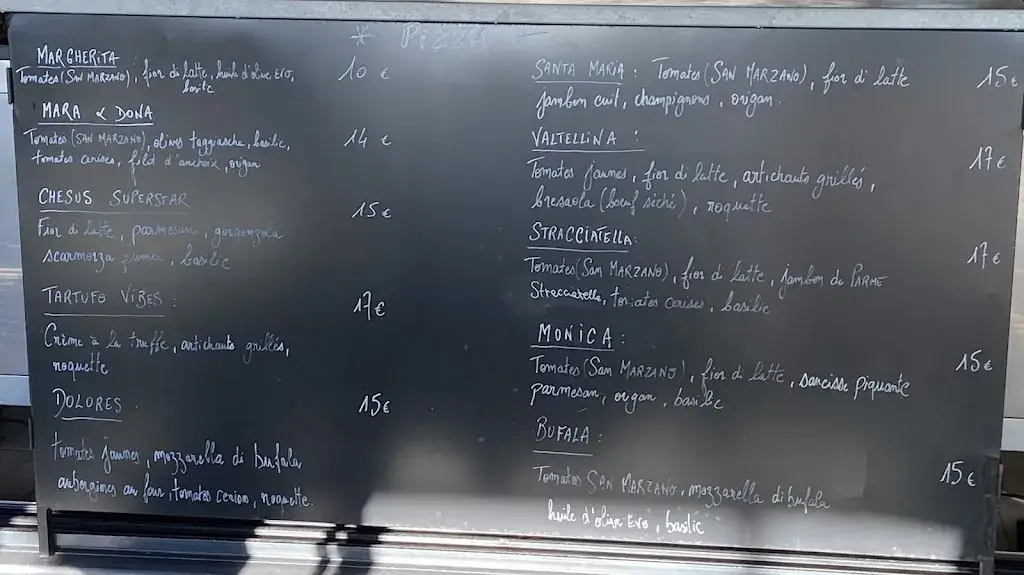 * Pizza *
MARGHERITA
Tomates (SAN MARZANO), fior di latte, huile d'olive EVO,
basilic
10 €
MARA & DONA
Tomates (SAN MARZANO), olives taggiasche, basilic,
tomates cerises, filet d'anchoix, origan
14 €
CHESUS SUPERSTAR
Fior di latte, parmesan, gorgonzola
scarmorza fumée, basilic
15 €
TARTUFO VIBES :
Crème à la truffe, artichauts grillés,
roquette
17 €
DOLORES :
tomates jaunes, mozzarella di bufala
aubergines au four, tomates cerises, roquette.
15 €
SANTA MARIA : Tomates (SAN MARZANO), fior di latte
jambon cuit, champignons, origan
15 €
VALTELLINA :
Tomates jaunes, fior di latte, artichauts grillés,
bresaola (boeuf séché), roquette
17 €
STRACCIATELLA :
Tomates (San MARZANO), fior di latte, jambon de PARME
Stracciatella, tomates cerises, basilic
17 €
MONICA :
Tomates (San MARZANO), fior di latte, saucisse piquante
parmesan, origan, basilic
15 €
BUFALA :
Tomates SAN MARZANO, mozzarella di bufala
huile d'olive EVO, basilic
15 €